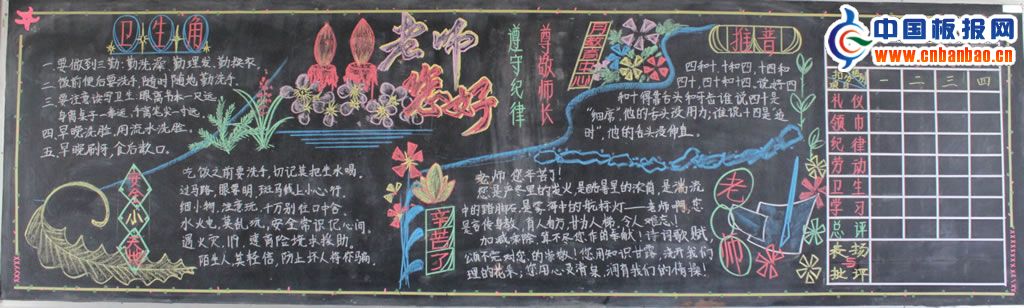 中国板报网
www.cnbanbao.cn
卫生角
一.要做到三勤:勤洗澡 勤理发,勤换衣.
二.饭前便后要洗手,随时随地勤洗手.
三.要注意读写卫生:眼离书本一尺远,
身离桌子一拳远,手离笔尖一寸远.
四.早晚洗脸,用流水洗脸.
五.早晚刷牙,食后漱口.
安全小天地
吃饭之前要洗手,切记莫把生水喝.
过马路,眼要明,斑马线上小心行.
细小物,注意玩,千万别往口中含.
水火电,莫乱玩,安全常识记心间.
遇火灾,119,遭遇险境水救助.
陌生人,莫轻信,防止坏人将你骗.
老师
您好
遵守纪律
尊敬师长
推普
四和十,十和四,十四和
四十,四十和十四.说好四
和十得靠舌头和牙齿.谁说四十是
"细席",他的舌头没用力;谁说十四是"适
时",他的舌头没伸直.
辛苦了
老师,您辛苦了!
您是严冬里的炭火,是酷暑里的浓荫,是湍流
中的踏脚石,是雾海中的航标灯——老师啊,您
言传身教,育人有方,甘为人梯,令人难忘!
加减乘除,算不尽您作的奉献!诗词歌赋,
颂不完对您的崇敬!您用知识甘露,浇开我们
理想的花朵;您用心灵清泉,润育我们的情操!
老师
一 二 三 四
礼仪
领巾
纪律
劳动
卫生
学习
总评
表扬
与
批评